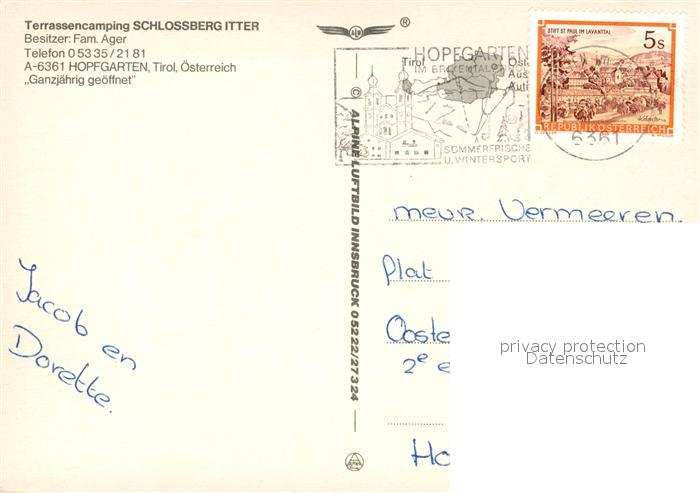 Terrassencamping SCHLOSSBERG ITTER
Besitzer: Fam. Ager
Telefon 0 53 35 / 21 81
A-6361 HOPFGARTEN, Tirol, Österreich
„Ganzjährig geöffnet"
®
© ALPINE LUFTBILD INNSBRUCK 0 52 22/27 3 24
HOPFGARTEN
IM BRIXENTAL
Tirol
SOMMERFRISCHE
U. WINTERSPORT
STIFT ST. PAUL IM LAVANTTAL
5s
REPUBLIK ÖSTERREICH
6361
meur. Vermeeren.
Plat
Ooste
2e e
Ho
Jacob en
Dorette.
privacy protection
Datenschutz